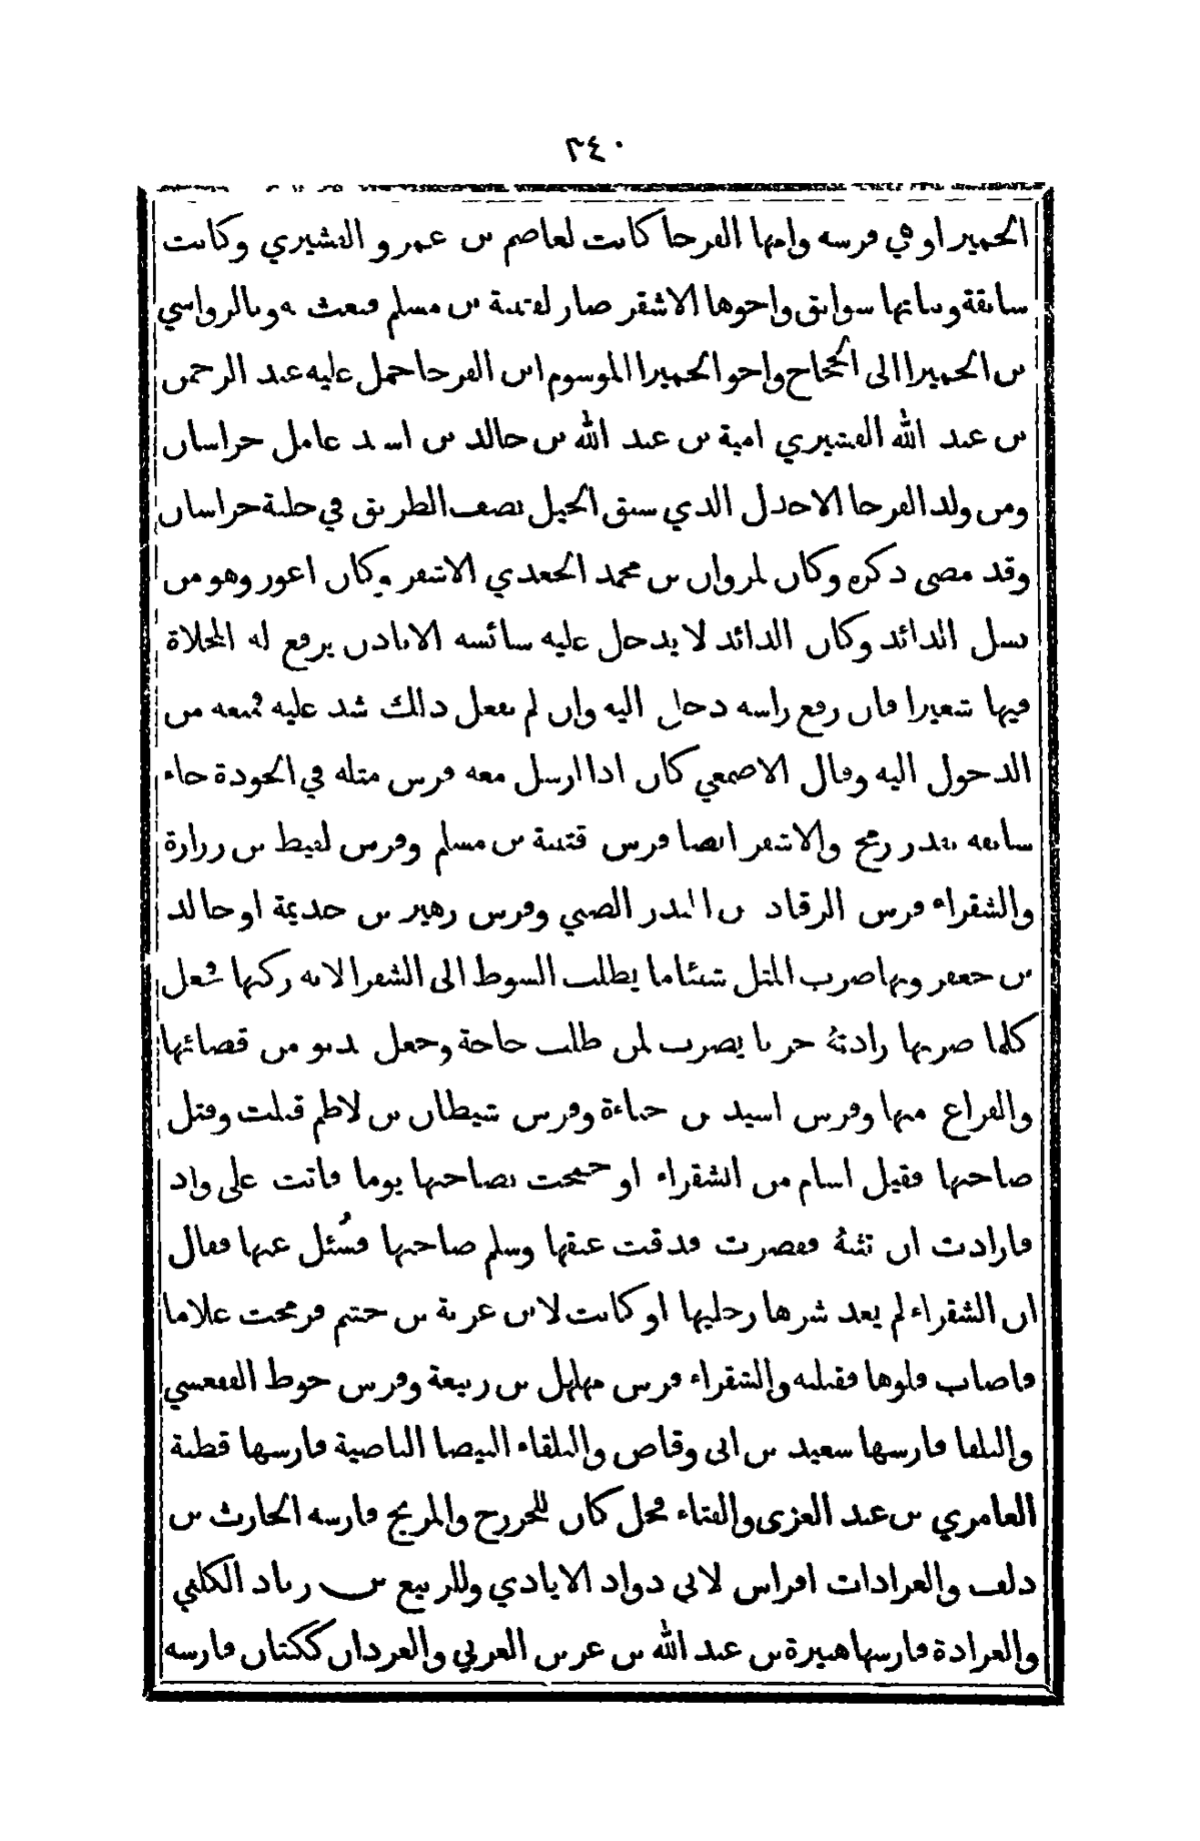 ٢٤٠
الحميرا وهي فرسه وامها القرحا كانت لعاصم بن عمرو القشيري وكانت
سابقة وبناتها سوابق واخوها الاشقر صار لقتيبة بن مسلم فبعث به وبالرواسي
بن الحميرا الى الحجاج واخو الحميرا الموسوم ابن القرحا حمل عليه عبد الرحمن
بن عبد الله القشيري امية بن عبد الله بن خالد بن اسيد عامل خراسان
ومن ولد القرحا الاجدل الذي سبق الخيل نصف الطريق في حلبة خراسان
وقد مضى ذكره وكان لمروان بن محمد الجعدي الاشقر وكان اعور وهو من
نسل الذائد وكان الذائد لا يدخل عليه سائسه الا باذن يرفع له المخلاة
فيها شعيرا فان رفع راسه دخل اليه وان لم يفعل ذلك شد عليه فمنعه من
الدخول اليه وقال الاصمعي كان اذا ارسل معه فرس مثله في الجودة جاء
سابقه بقدر رمح والاشقر ايضا فرس قتيبة بن مسلم وفرس لقيط بن زرارة
والشقراء فرس الرقاد بن المنذر الضبي وفرس زهير بن جذيمة او خالد
بن جعفر وبها ضرب المثل شيئا ما يطلب السوط الى الشقرا لانه ركبها فجعل
كلما ضربها زادته جريا يضرب لمن طلب حاجة وجعل يدنو من قضائها
والفراغ منها وفرس اسيد بن حناءة وفرس شيطان بن لاطم قتلت وقتل
صاحبها فقيل اشام من الشقراء او جمحت بصاحبها يوما فاتت على واد
فارادت ان تثبه فقصرت فدقت عنقها وسلم صاحبها فسُئل عنها فقال
ان الشقراء لم يعد شرها رجليها او كانت لابن غرية بن جشم فرمحت غلاما
فاصاب فلوها فقتلته والشقراء فرس مهلهل بن ربيعة وفرس حوط الفقعسي
والبلقا فارسها سعيد بن ابي وقاص والبلقاء البيضا الناصية فارسها قطبة
العامري بن عبد العزى والقتاء فحل كان للخزرج والمريح فارسه الحارث بن
دلف والعرادات افراس لابي دواد الايادي وللربيع بن زياد الكلبي
والعرادة فارسها هبيرة بن عبد الله بن عرين العربي والعردان ككتان فارسه